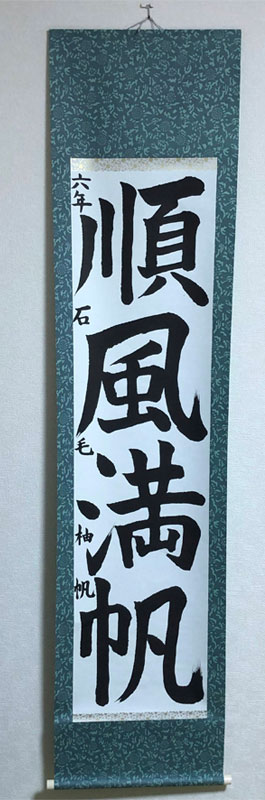 順風満帆
六年 石毛 柚帆